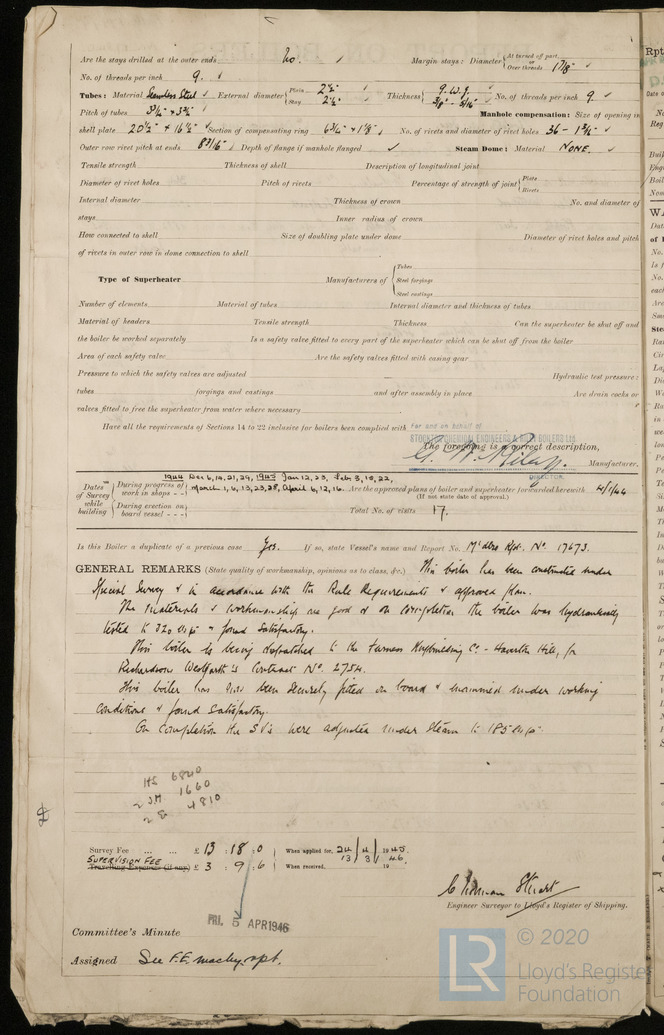 Are the stays drilled at the outer ends No. ✓ Margin stays: Diameter { At turned off part, or Over threads 1 7/8" ✓
No. of threads per inch 9. ✓
Tubes: Material Seamless Steel ✓ External diameter { Plain 2½" Stay 2½" ✓ Thickness { 9 W.G. 3/8" - 5/16" ✓ No. of threads per inch 9. ✓
Pitch of tubes Manhole compensation: Size of opening in
shell plate 20½" + 16½" ✓ Section of compensating ring ✓ No. of rivets and diameter of rivet holes 36 - ✓
Outer row rivet pitch at ends 8 3/16" ✓ Depth of flange if manhole flanged ✓ Steam Dome: Material NONE. ✓
Tensile strength Thickness of shell Description of longitudinal joint
Diameter of rivet holes Pitch of rivets Percentage of strength of joint { Plate Rivets
Internal diameter Thickness of crown No. and diameter of
stays Inner radius of crown
How connected to shell Size of doubling plate under dome Diameter of rivet holes and pitch
of rivets in outer row in dome connection to shell
Type of Superheater Manufacturers of { Tubes Steel forgings Steel castings
Number of elements Material of tubes Internal diameter and thickness of tubes
Material of headers Tensile strength Thickness Can the superheater be shut off and
the boiler be worked separately Is a safety valve fitted to every part of the superheater which can be shut off from the boiler
Area of each safety valve Are the safety valves fitted with easing gear
Pressure to which the safety valves are adjusted Hydraulic test pressure:
tubes forgings and castings and after assembly in place Are drain cocks or
valves fitted to free the superheater from water where necessary
Have all the requirements of Sections 14 to 22 inclusive for boilers been complied with
For and on behalf of
STOCKTON CHEMICAL ENGINEERS & RILEY BOILERS Ltd.
The foregoing is a correct description,
Riley. Manufacturer.
DIRECTOR
Dates of Survey while building { During progress of work in shops - - } 1944 Dec 6, 14, 21, 29, 1945 Jan 12, 23, Feb 3, 15, 22, March 1, 6, 13, 23, 28, April 6, 12, 16.
Are the approved plans of boiler and superheater forwarded herewith 4/1/44
(If not state date of approval.)
During erection on board vessel - - - Total No. of visits 17.
Is this Boiler a duplicate of a previous case Yes. If so, state Vessel's name and Report No. Rpt. No. 17673.
GENERAL REMARKS (State quality of workmanship, opinions as to class, &c.) This boiler has been constructed under
Special Survey & in accordance with the Rule Requirements & approved plan.
The materials & workmanship are good & on completion the boiler was hydraulically
tested to 320 & found satisfactory.
This boiler is being dispatched to the Furness Shipbuilding Co. - Haverton Hill, for
Richardson Westgarth's Contract No. 2754.
This boiler has been securely fitted on board & examined under working
conditions & found satisfactory.
On completion the S.V's were adjusted under steam to 185
HS 6840
1660
4810
Survey Fee ... ... £ 13 : 18 : 0 When applied for, 24/4/1945 13/3/46
SUPERVISION FEE
Travelling Expenses (if any) £ 3 : 9 : 6 When received, 19
Stuart
Engineer Surveyor to Lloyd's Register of Shipping.
FRI. 5 APR 1946
Committee's Minute
Assigned See F.E. machy. rpt.
LR © 2020
Lloyd's Register
Foundation